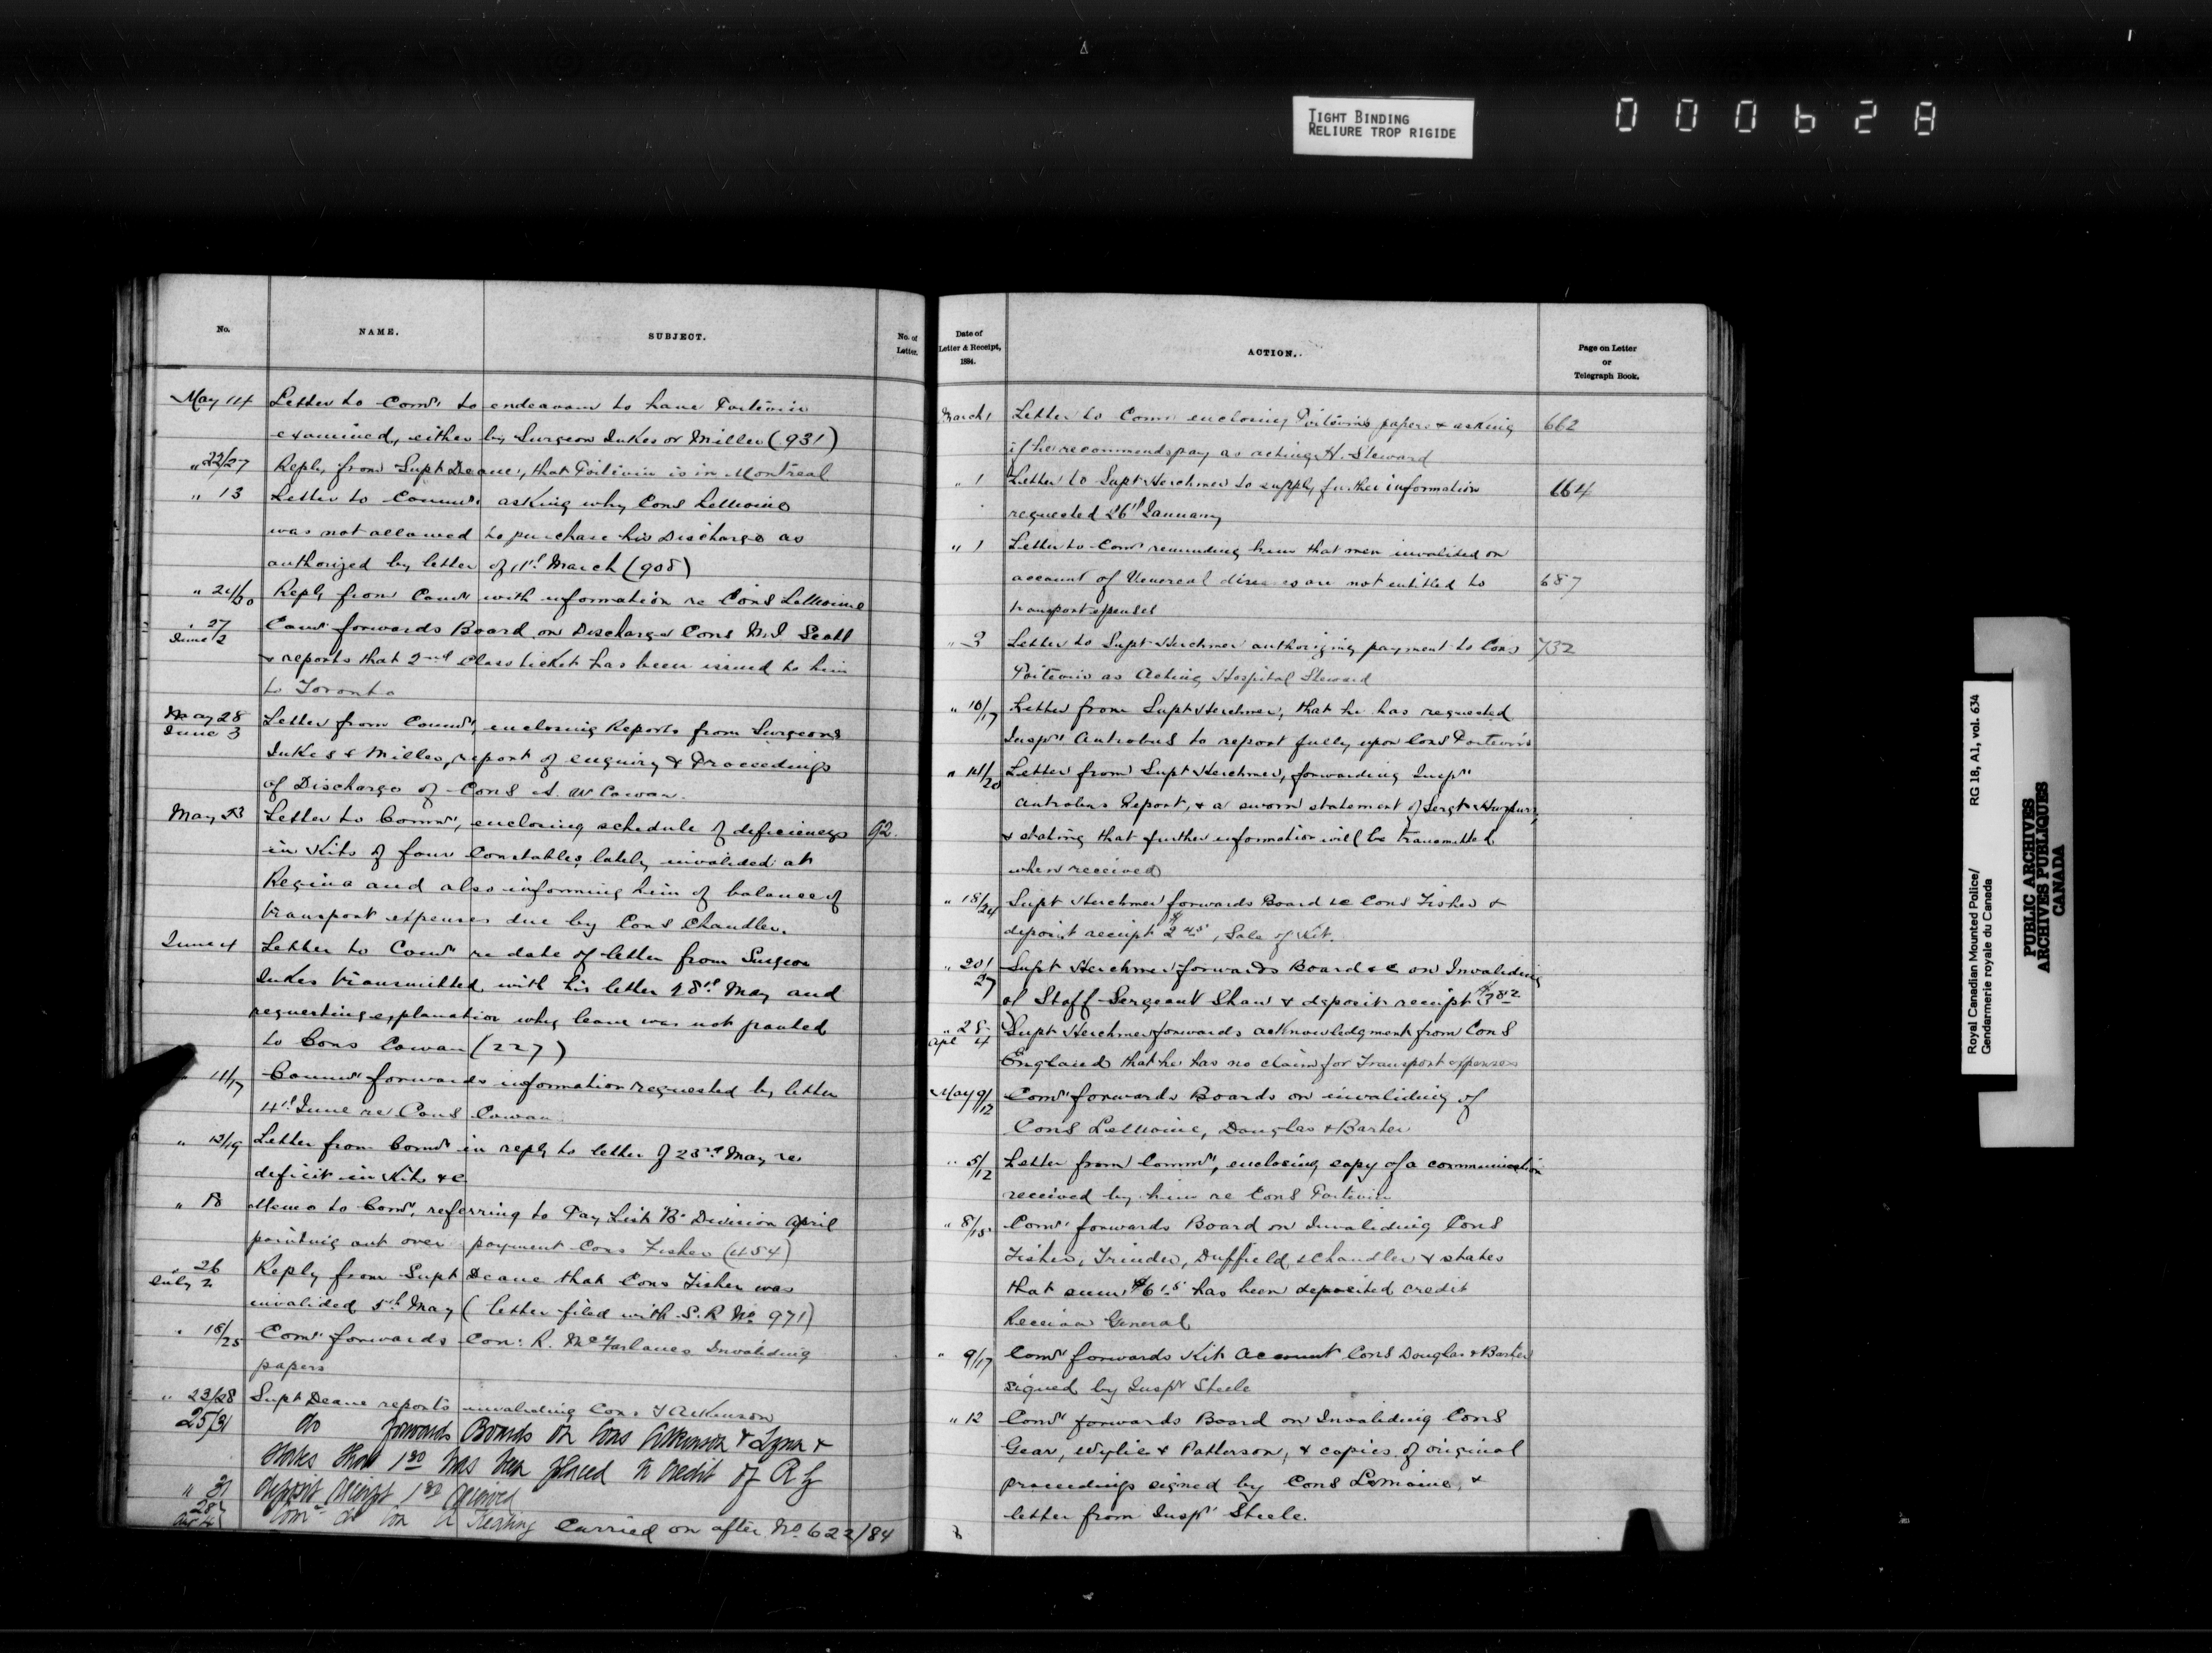 TIGHT BINDING
RELIURE TROP RIGIDE
000628
No.
NAME.
SUBJECT.
No. of
Letter.
May 14 Letter to Comr to endeavour to have Poitevin
examined, either by Surgeon Jukes or Miller (931)
" 22/27 Reply from Supt Deane, that Poitevin is in Montreal
" 13 Letter to Commr asking why Cons LeMoine
was not allowed to purchase his Discharge as
authorized by letter of 11th March (908)
" 24/30 Reply from Comr with information re Cons LeMoine
" 27 June 2 Comr forwards Board on Discharge Cons Scott
& reports that 2nd Class ticket has been issued to him
to Toronto
May 28 June 3 Letter from Commr, enclosing Reports from Surgeons
Jukes & Miller, report of enquiry & Proceedings
of Discharge of Cons A. W Cowan.
May 23 Letter to Commr, enclosing schedule of deficiencys 92.
in Kits of four Constables, lately invalided at
Regina and also informing him of balance of
transport expenses due by Cons Chandler.
June 4 Letter to Comr re date of letter from Surgeon
Jukes transmitted with his letter 28th May and
requesting explanation why leave was not granted
to Cons Cowan (227)
" 11/17 Commr forwards information requested by letter
4th June re Cons Cowan
" 13/19 Letter from Comr in reply to letter of 23rd May re
deficit in Kits &c
" 18 Memo to Comr, referring to Pay List 'B' Division April
pointing out over payment Cons Fisher (454)
" 26 July 2 Reply from Supt Deane that Cons Fisher was
invalided 5th May (letter filed with S.R No 971)
" 18/25 Comr forwards Con: R. McFarlanes Invaliding
papers
" 23/28 Supt Deane reports invaliding Con. Atkinson
25/31 do forwards Boards on Cons Atkinson & Lynn &
states that 1.30 has been placed to credit of R G
" 31 deposit receipt 1.30 received
28 Comr do Con Keating Carried on after No. 622/84
Date of
Letter & Receipt,
1884.
ACTION.
Page on Letter
or
Telegraph Book.
March 1 Letter to Comr enclosing Poitevin's papers & asking 662
if he recommends pay as acting H. Steward
" 1 Letter to Supt Herchmer to supply further information 664
requested 26th January
" 1 Letter to Comr reminding him that men invalided on
account of Venereal diseases are not entitled to 687
transport expenses
" 3 Letter to Supt Herchmer authorizing payment to Cons 732
Poitevin as Acting Hospital Steward
" 10/17 Letter from Supt Herchmer, that he has requested
Inspr Antrobus to report fully upon Cons Poitevin's
" 14/20 Letter from Supt Herchmer, forwarding Inspr
Antrobus Report, & a sworn statement of Sergt
& stating that further information will be transmitted
when received
" 18/24 Supt Herchmer forwards Board re Cons Fisher &
deposit receipt $2.45, Sale of Kit.
" 20/27 Supt Herchmer forwards Board &c on Invaliding
of Staff Sergeant Shaw & deposit receipt $3.82
" 28 Apl 4 Supt Herchmer forwards acknowledgment from Cons
England that he has no claim for Transport expenses
May 9/12 Comr forwards Boards on invaliding of
Cons LeMoine, Douglas & Barter
" 5/12 Letter from Commr, enclosing copy of a communication
received by him re Cons Poitevin
" 8/15 Comr forwards Board on Invaliding Cons
Fisher, Trinder, Duffield, & Chandler & states
that sum $6.15 has been deposited credit
Receiver General
" 9/17 Comr forwards Kit Account Cons Douglas & Barter
signed by Inspr Steele
" 12 Comr forwards Board on Invaliding Cons
Gear, Wylie & Patterson, & copies of original
proceedings signed by Cons Lemoine, &
letter from Inspr Steele.
Royal Canadian Mounted Police/ RG 18, A1, vol. 634
Gendarmerie royale du Canada
PUBLIC ARCHIVES
ARCHIVES PUBLIQUES
CANADA